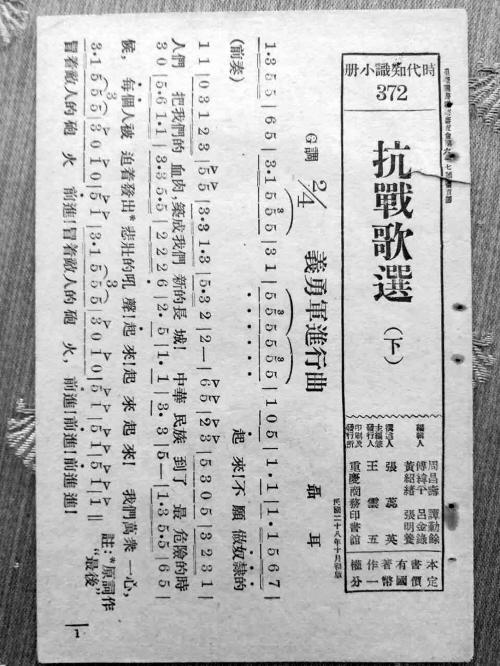 時代知識小册
372
抗戰歌選
(下)
編輯人 周昌壽 譚勤餘
傅緯平 呂金錄
黃紹緒 張明養
撰述人 張蕊英
主編兼發行人 王雲五
印刷及發行所 重慶商務印書館
本書有著作權
定價國幣一分
民國二十八年十月初版
G調 2/4 義勇軍進行曲 聶耳
1·355|65|3·1555|31|555555|105|1·1|1·1567|
(前奏) 起來!不願做奴隸的
11|03123|55|3·31·3|5·32|2—|65|23|5305|3231|
人們 把我們的血肉,築成我們新的長城! 中華民族到了最危險的時
30|5·61·1|3·35·5|2226|2·5|1·1|3·3|5—|1·355|65|
候, 每個人被迫着發出*悲壯的吼聲!起來!起來起來! 我們萬衆一心,
3·1555|3010|51|3·1555|3010|51|51|51|1|
冒着敵人的砲火 前進!冒着敵人的砲火,前進!前進!前進進!
註:*原詞作“最後”
1